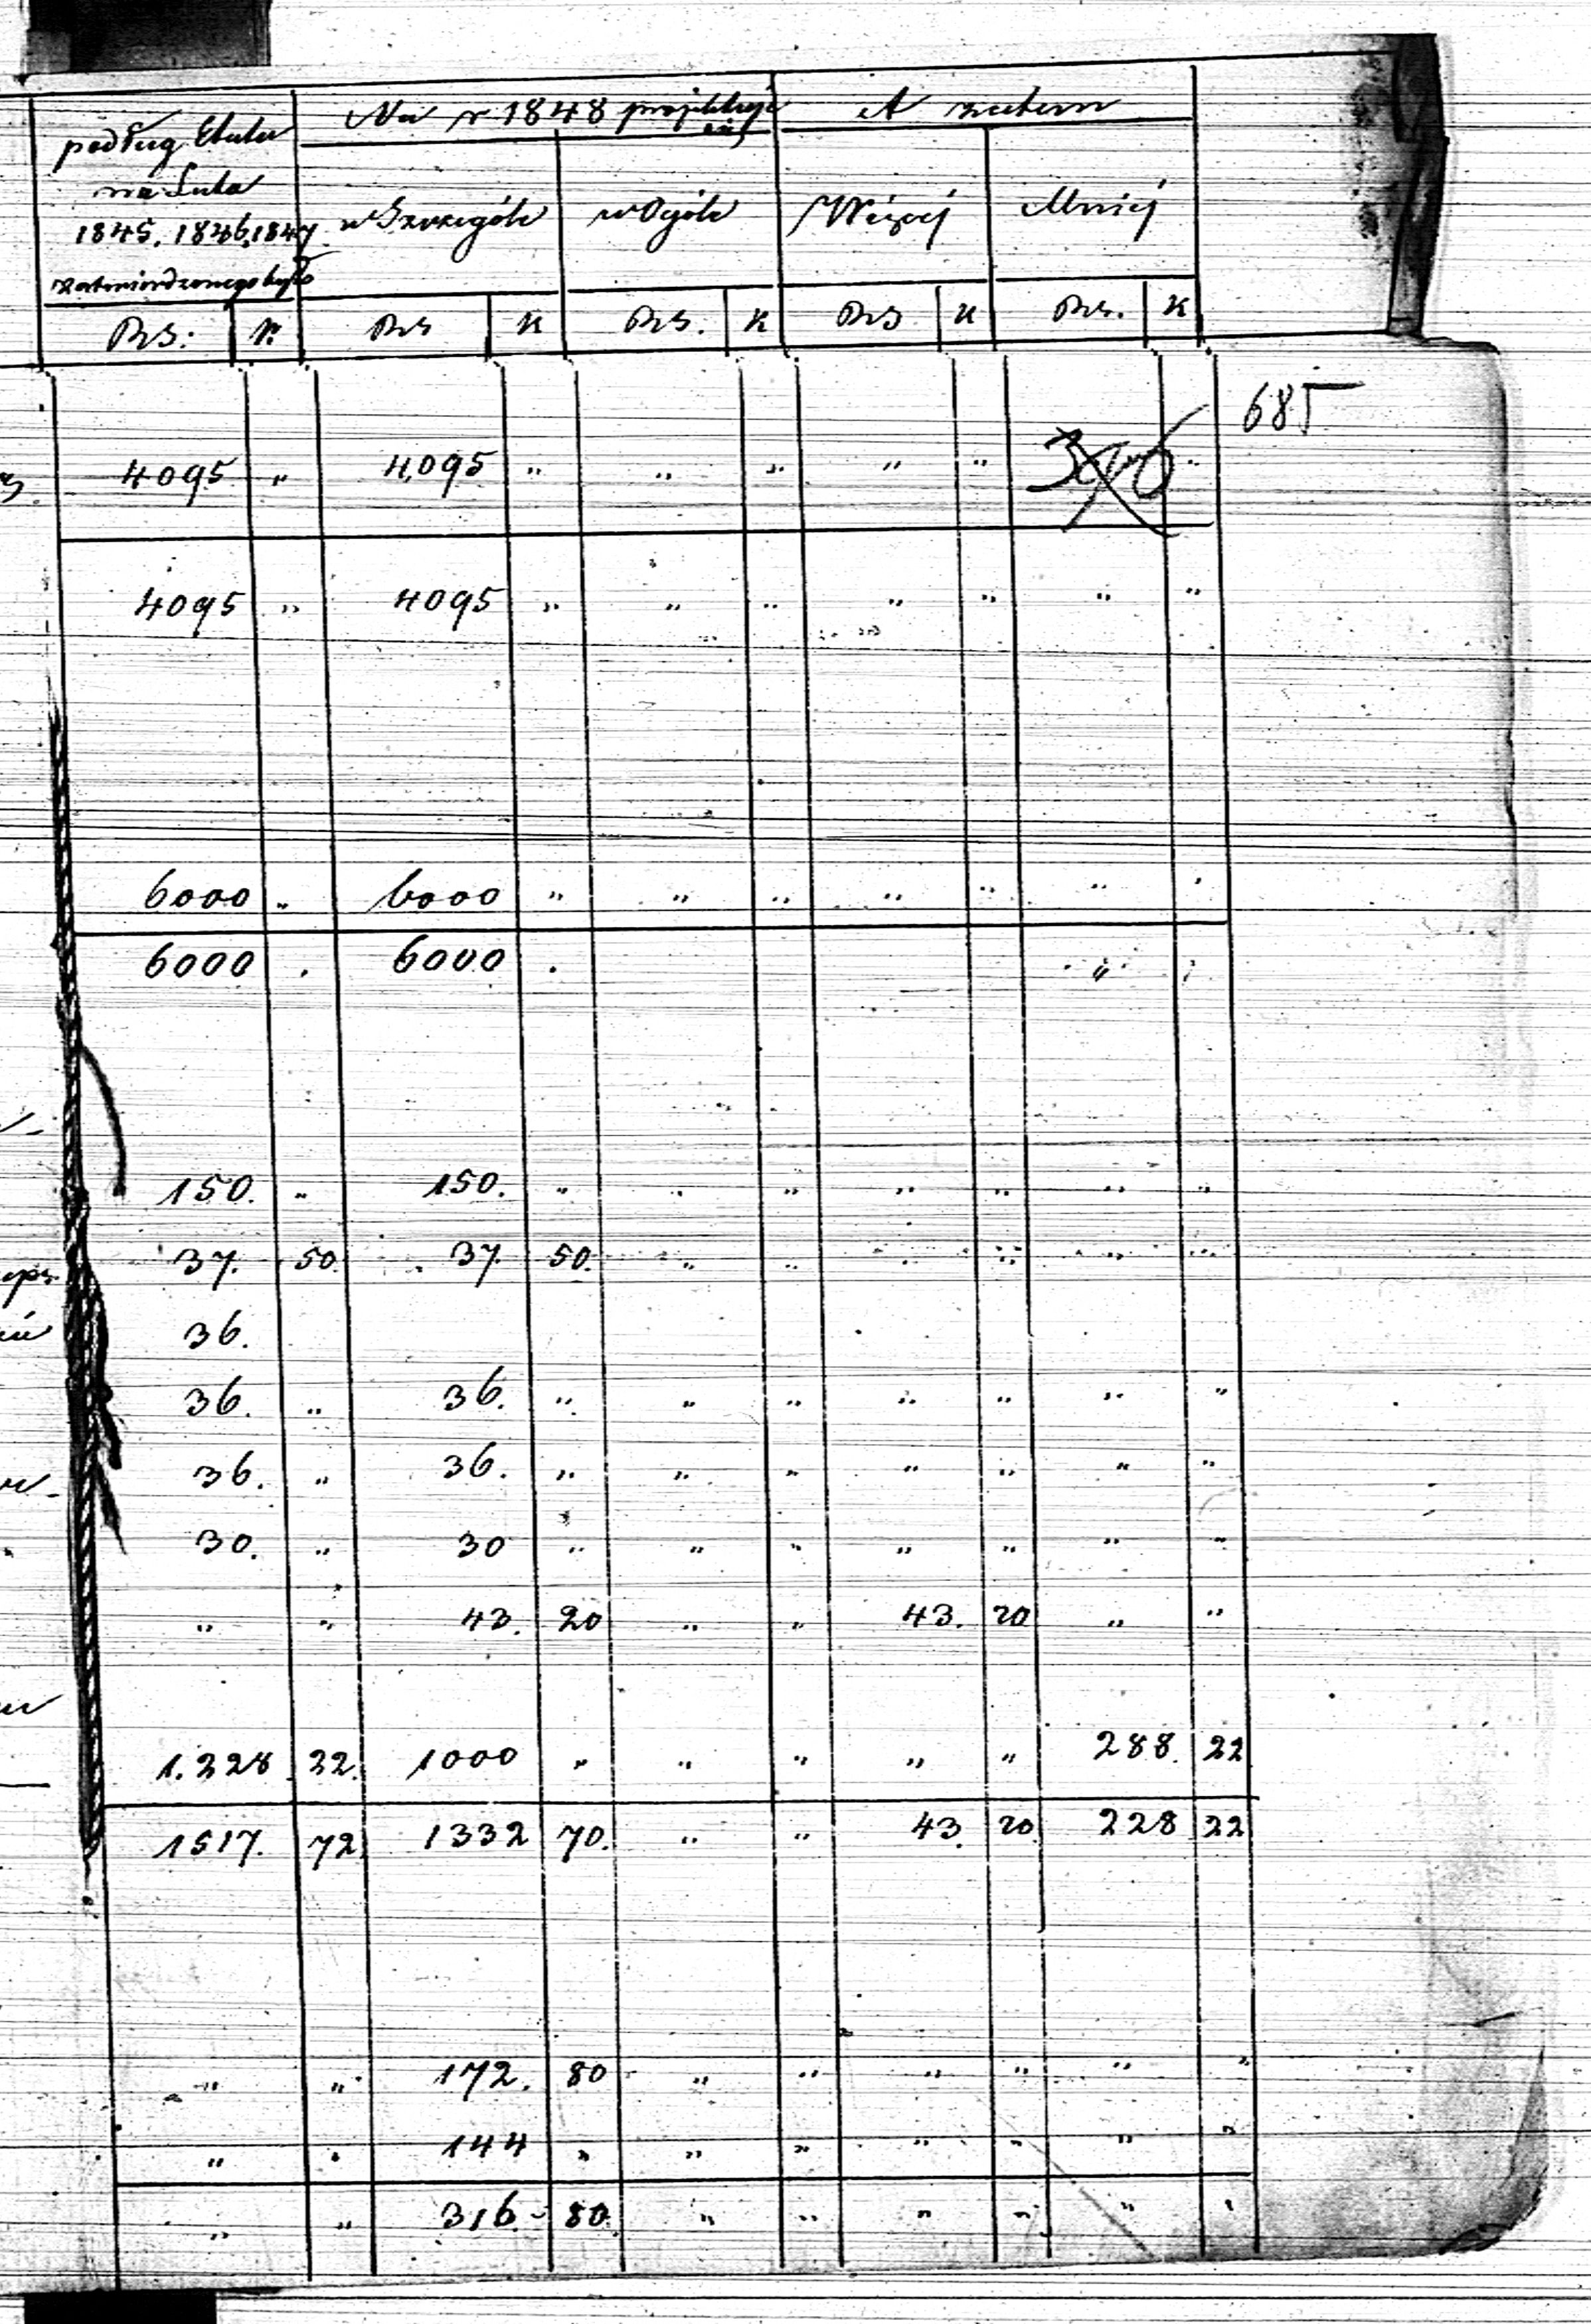 podług Etatu na Lata 1845, 1846, 1847 zatwierdzonego było
Na r 1848 projektuje się
A zatem
w Szczególe w Ogóle Więcej Mniej
RS: K. RS K RS. K RS K RS. K
685
4095 " 4095 " " " " " "
4095 " 4095 " " " " " " "
6000 " 6000 " " " " " " "
6000 . 6000 . " "
150. " 150. " " " " " " "
37. 50. 37. 50. " " " " " "
36.
36. " 36. " " " " " " "
36. " 36. " " " " " " "
30. " 30 " " " " " " "
" " 43. 20 " " 43. 20 " "
1.228 22. 1000 " " " " " 288. 22
1517. 72. 1332 70. " " 43. 20. 228 22
" " 172. 80 " " " " " "
" " 144 " " " " " " "
" " 316 - 80. " " " " " "